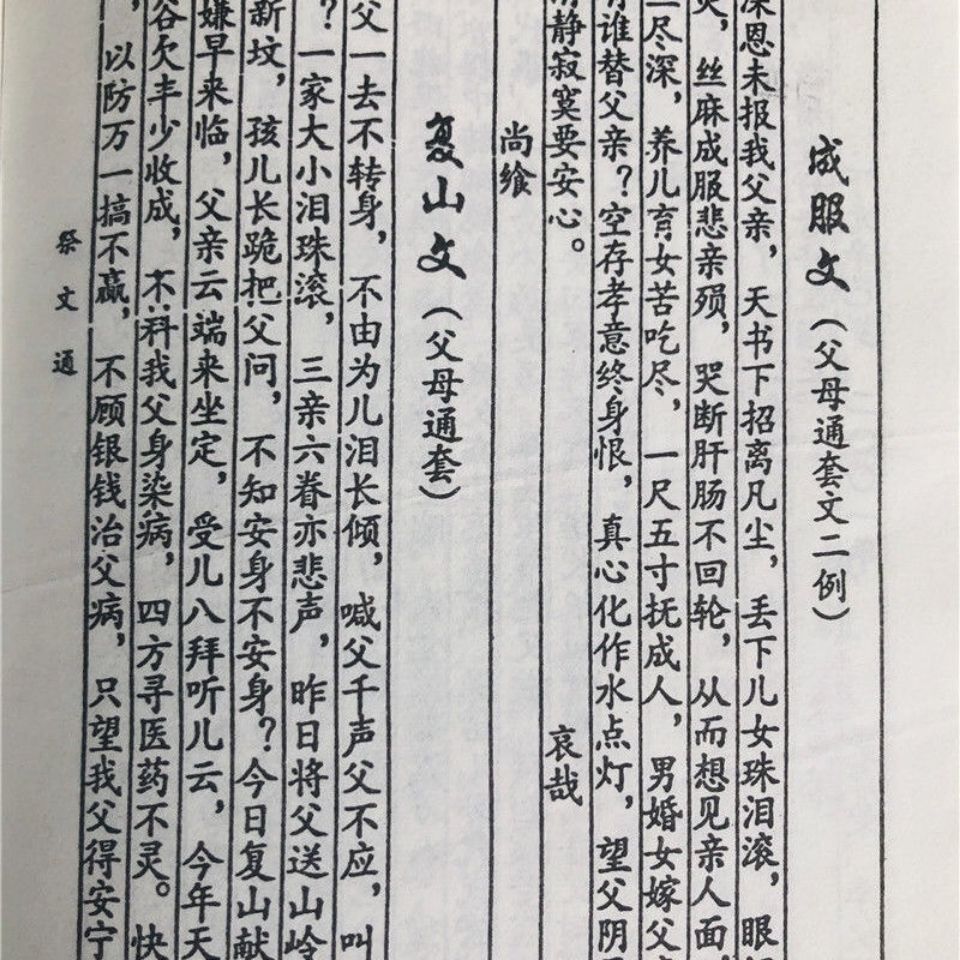 成服文（父母通套文二例）
深恩未报我父亲，天书下招离凡尘，丢下儿女珠泪滚，眼
丝麻成服悲亲殒，哭断肝肠不回轮，从而想见亲人面，
尽深，养儿育女苦吃尽，一尺五寸抚成人，男婚女嫁父
谁替父亲？空存孝意终身恨，真心化作水点灯，望父阴
静寂寞要安心。 哀哉
尚飨
复山文（父母通套）
父一去不转身，不由为儿泪长倾，喊父千声父不应，叫
？一家大小泪珠滚，三亲六眷亦悲声，昨日将父送山岭
新坟，孩儿长跪把父问，不知安身不安身？今日复山献
嫌早来临，父亲云端来坐定，受儿八拜听儿云，今年天
谷欠丰少收成，不料我父身染病，四方寻医药不灵。快
，以防万一搞不赢，不顾银钱治父病，只望我父得安宁
祭文通